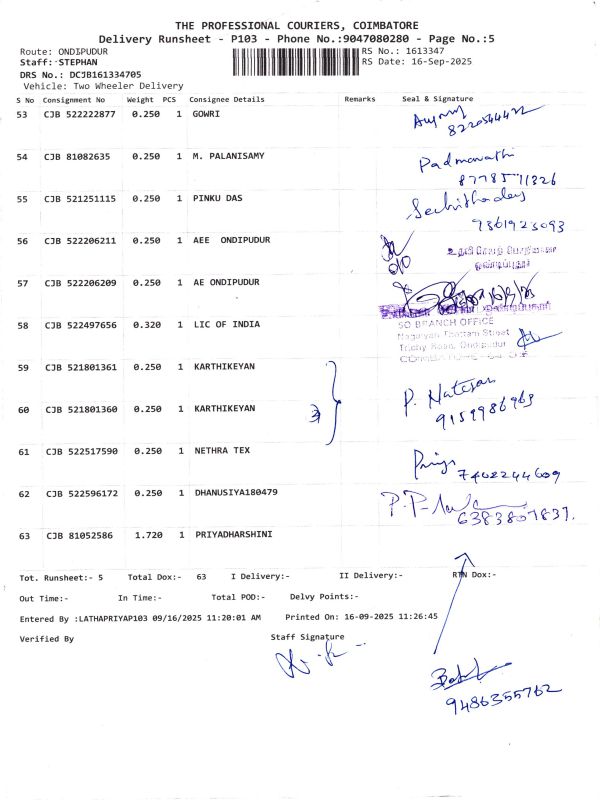 THE PROFESSIONAL COURIERS, COIMBATORE
Delivery Runsheet - P103 - Phone No.:9047080280 - Page No.:5
Route: ONDIPUDUR RS No.: 1613347
Staff: STEPHAN RS Date: 16-Sep-2025
DRS No.: DCJB161334705
Vehicle: Two Wheeler Delivery
S No Consignment No Weight PCS Consignee Details Remarks Seal & Signature
53 CJB 522222877 0.250 1 GOWRI
54 CJB 81082635 0.250 1 M. PALANISAMY Padmavathi
8778571326
55 CJB 521251115 0.250 1 PINKU DAS
7361923093
56 CJB 522206211 0.250 1 AEE ONDIPUDUR
57 CJB 522206209 0.250 1 AE ONDIPUDUR
58 CJB 522497656 0.320 1 LIC OF INDIA
SO BRANCH OFFICE
Trichy Road, Ondipudur
59 CJB 521801361 0.250 1 KARTHIKEYAN
60 CJB 521801360 0.250 1 KARTHIKEYAN P. Natesan
9159986963
61 CJB 522517590 0.250 1 NETHRA TEX Priya 7402244609
62 CJB 522596172 0.250 1 DHANUSIYA180479
6383807837.
63 CJB 81052586 1.720 1 PRIYADHARSHINI
Tot. Runsheet:- 5 Total Dox:- 63 I Delivery:- II Delivery:- RTN Dox:-
Out Time:- In Time:- Total POD:- Delvy Points:-
Entered By :LATHAPRIYAP103 09/16/2025 11:20:01 AM Printed On: 16-09-2025 11:26:45
Verified By Staff Signature
9486355762